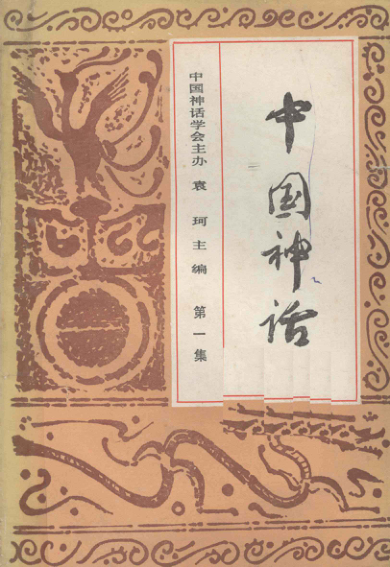 中国神话
中国神话学会主办 袁珂主编 第一集